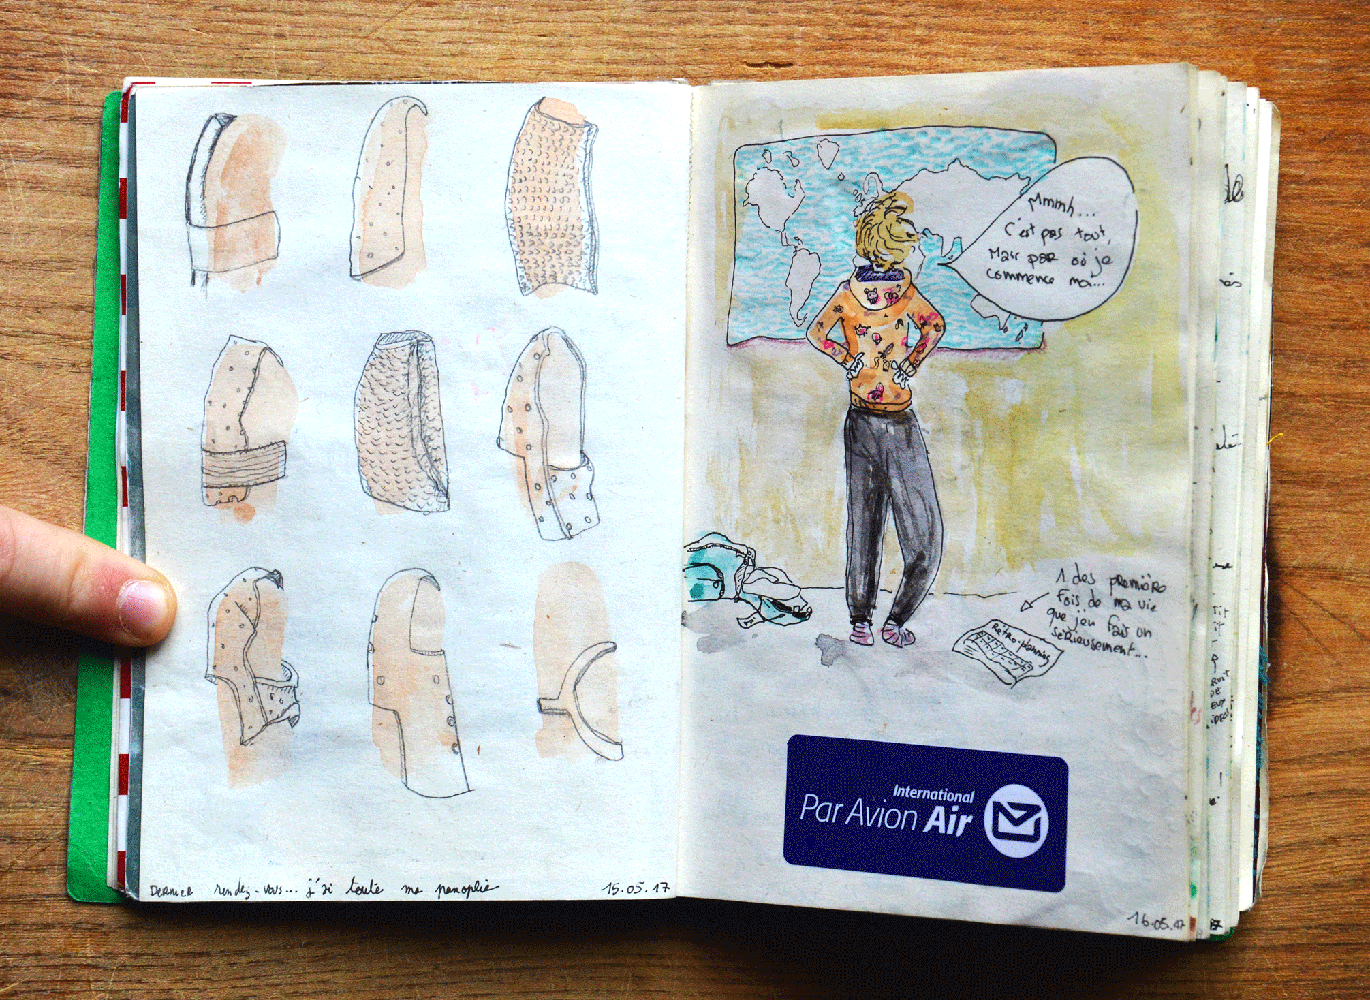 Dernier rendez-vous... j'ai toute ma panoplie
15.05.17
Mmmh...
C'est pas tout,
Mais par où je
commence moi...
1 des première
fois de ma vie
que j'en fais un
sérieusement...
Retro-planning
International
Par Avion Air
16.05.17